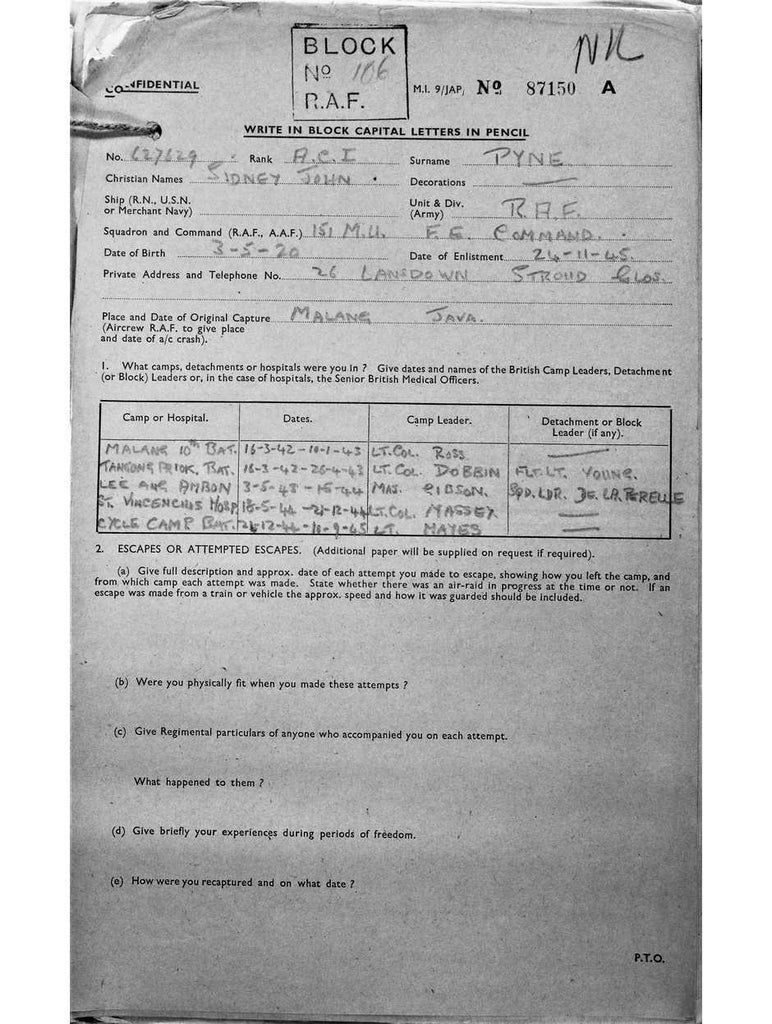 BLOCK
No 106
R.A.F.
NR
CONFIDENTIAL
M.I. 9/JAP/ No 87150 A
WRITE IN BLOCK CAPITAL LETTERS IN PENCIL
No. 627629 Rank A.C.I Surname PYNE
Christian Names SIDNEY JOHN Decorations —
Ship (R.N., U.S.N. or Merchant Navy) Unit & Div. (Army) R.A.F.
Squadron and Command (R.A.F., A.A.F.) 151 M.U. F.E. COMMAND.
Date of Birth 3-5-20 Date of Enlistment 24-11-45.
Private Address and Telephone No. 26 LANSDOWN STROUD GLOS.
Place and Date of Original Capture MALANG JAVA.
(Aircrew R.A.F. to give place
and date of a/c crash).
1. What camps, detachments or hospitals were you in ? Give dates and names of the British Camp Leaders, Detachment
(or Block) Leaders or, in the case of hospitals, the Senior British Medical Officers.
Camp or Hospital. Dates. Camp Leader. Detachment or Block Leader (if any).
MALANG 10th BAT. 16-3-42-10-1-43 LT. COL. ROSS —
TANGONG PRIOK, BAT. 16-3-42-26-4-43 LT. COL. DOBBIN FLT. LT. YOUNG.
LEE ANG AMBON 3-5-43 - 15-44 MAJ. GIBSON. SQD. LDR. DE. LA. PERELLE
ST. VINCENCIUS HOSP 18-5-44 - 21-12-44 LT. COL. MASSEY. —
CYCLE CAMP BAT. 21-12-44-10-9-45 LT. MAYES —
2. ESCAPES OR ATTEMPTED ESCAPES. (Additional paper will be supplied on request if required).
(a) Give full description and approx. date of each attempt you made to escape, showing how you left the camp, and
from which camp each attempt was made. State whether there was an air-raid in progress at the time or not. If an
escape was made from a train or vehicle the approx. speed and how it was guarded should be included.
(b) Were you physically fit when you made these attempts ?
(c) Give Regimental particulars of anyone who accompanied you on each attempt.
What happened to them ?
(d) Give briefly your experiences during periods of freedom.
(e) How were you recaptured and on what date ?
P.T.O.